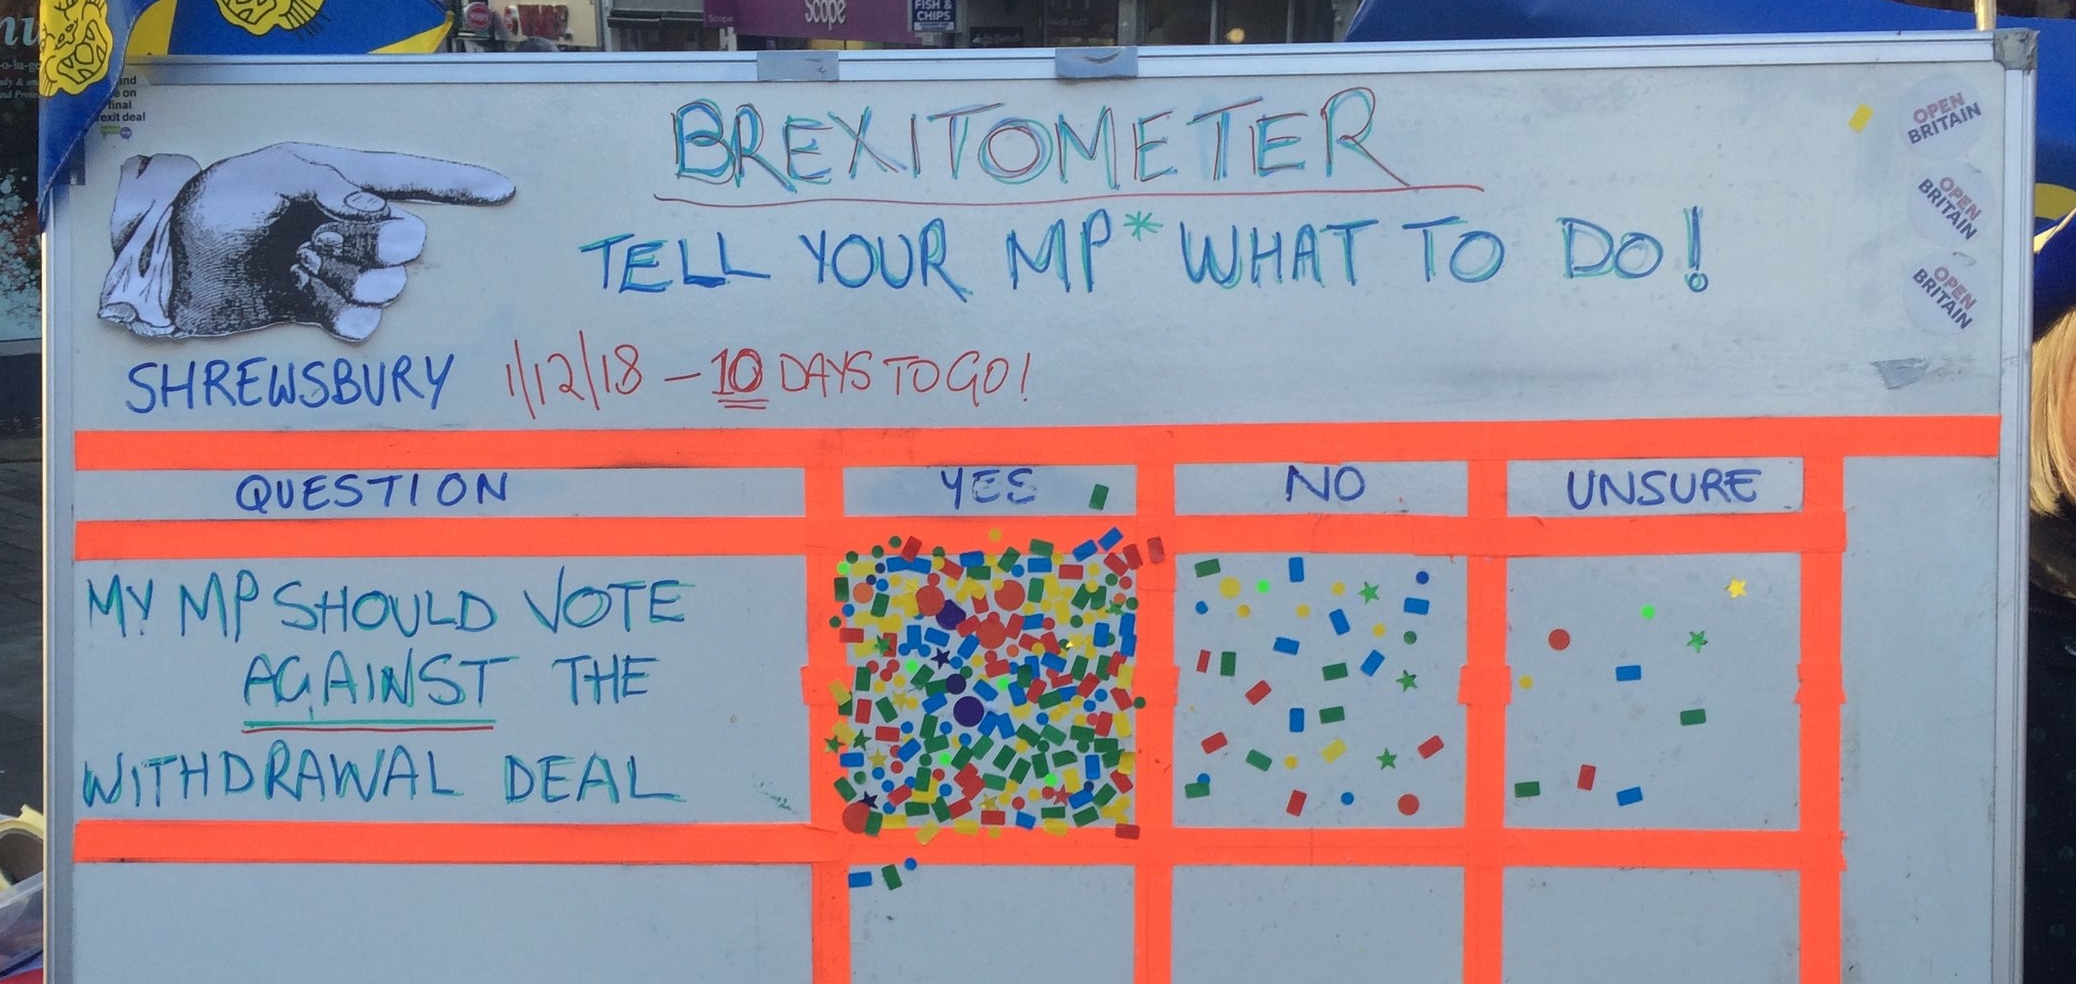 Scope
Scope
FISH &
CHIPS
and
e on
final
rexit deal
BREXITOMETER
OPEN
BRITAIN
TELL YOUR MP* WHAT TO DO!
OPEN
BRITAIN
OPEN
BRITAIN
SHREWSBURY 1/12/18 – 10 DAYS TO GO!
QUESTION YES NO UNSURE
MY MP SHOULD VOTE
AGAINST THE
WITHDRAWAL DEAL